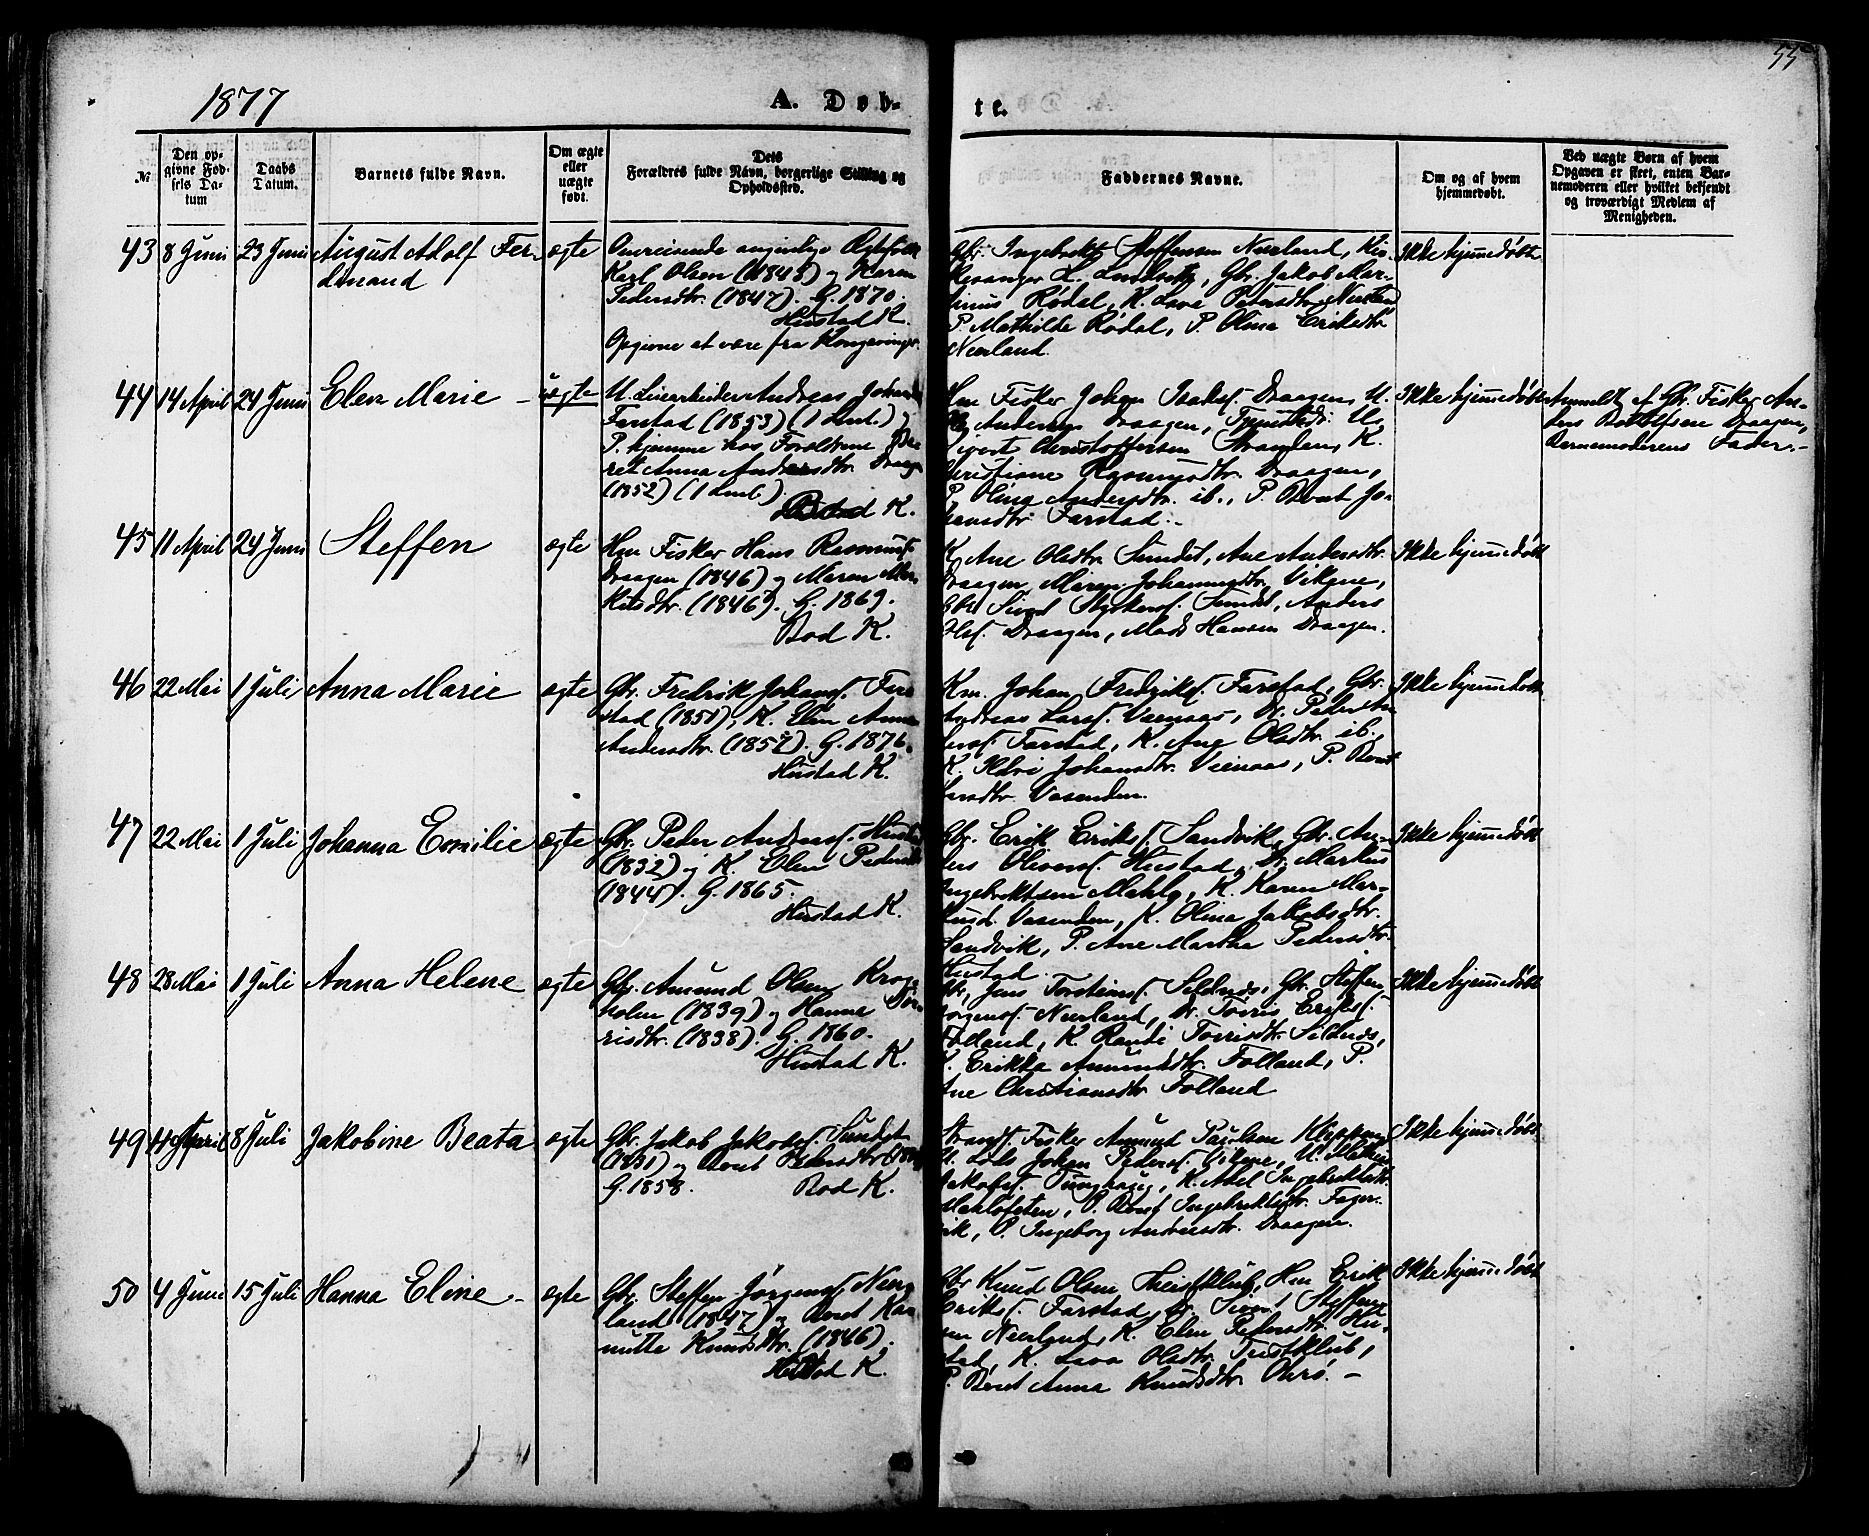 55
1877
A. Døb-
te.
№
Den op-
givne Fød-
sels Da-
tum
Daabs
Datum.
Barnets fulde Navn.
Om ægte
eller
uægte
født.
Dets
Forældres fulde Navn, borgerlige Stilling og
Opholdssted.
Faddernes Navne.
Om og af hvem
hjemmedøbt.
Ved uægte Børn af hvem
Opgaven er skeet, enten Bar-
nemoderen eller hvilket bekjendt
og troværdigt Medlem af
Menigheden.
43 8 Juni 23 Juni August Adolf Fer-
dinand
ægte
Omreisende angivelige Ægtefolk
Karl Olsen (1848) og Karen
Pedersdtr. (1847). G. 1870.
Hustad K.
Opgivne at være fra Kongsvinger.
Gbr. Ingebrekt Steffensen Nerland,
L. Gbr. Jakob Mar-
tinus Rødal, K. Lava Pedersdtr. Nerland
P. Mathilde Rødal, P. Olina Eriksdtr.
Nerland.
Ikke hjemmedøbt
44 14 April 24 Juni Elen Marie -
uægte
U. Andreas
Farstad (1853) (1 Leml.) og
P. hjemme hos Forældrene Be-
ret Anna Andersdtr. Draagen
(1852) (1 Leml.)
Bod K.
Hm Fisker Johan Isaksf. Draagen, U.
Anders Draagen, U.
Sivert Christoffersen K.
Christiane Rasmusdtr. Draagen,
P. Olina Andersdtr. ib., P. Beret Jo-
hansdtr. Farstad. -
Ikke hjemmedøbt
Anmeldt af Gbr. Fisker An-
ders Draagen,
Barnemoderens Fader. -
45 11 April 24 Juni Steffen
ægte
Hm Fisker Hans Rasmusf.
Draagen (1846) og Maren Mar-
kitsdtr. (1846). G. 1869.
Bod K.
K. Ane Olsdtr. Sundet, Ane Andersdtr.
Draagen, Maren Johannesdtr. Vikene,
Gbr. Sivert Sundet, Anders
Olsf. Draagen, Mads Hansen Draagen.
Ikke hjemmedøbt
46 22 Mai 1 Juli Anna Marie
ægte
Gbr. Fredrik Johansf. Far-
stad (1851), K. Elen Anna
Andersdtr. (1857). G. 1876.
Hustad K.
Km. Johan Fredriksf. Farstad, Gbr.
Andreas Larsf. Vienaas, Peder An-
dersf. Farstad, K. Ane Olsdtr. ib.,
K. Johansdtr. Vienaas, P. Beret
Vasenden.
Ikke hjemmedøbt
47 22 Mai 1 Juli Johanna Emilie
ægte
Gbr. Peder Andersf. Hustad
(1832) og K. Elen Pedersdtr.
(1844). G. 1865.
Hustad K.
Gbr. Erik Eriksf. Sandvik, Gbr. An-
ders Oliversf. Hustad, Dr. Markus
Ingebrektsen Mahlø, K. Karen
Vasenden, K. Olina Jakobsdtr.
Sandvik, P. Ane Martha Pedersdtr.
Hustad.
Ikke hjemmedøbt
48 28 Mai 1 Juli Anna Helene
ægte
Gbr. Amund Olsen Krog-
holm (1839) og Hanne Tor-
risdtr. (1838). G. 1860.
Hustad K.
Gbr. Jens Torstensf. Sildnes, Gbr. Steffen
Jørgensf. Nerland, Dr. Torris Eriksf.
Folland, K. Randi Torrisdtr. Sildnes,
K. Erikka Amundsdtr. Folland, P.
Ane Christiansdtr. Folland
Ikke hjemmedøbt
49 April 8 Juli Jakobine Beata
ægte
Gbr. Jakob Jakobsf. Sundet
(1831) og Beret Pedersdtr.
G. 1858. Bod K.
Fisker Amund Paulsen
Johan Pedersf. Vikene, U.
Jakobsf. Tunghaug, K. Abel Ingebrektsdtr.
P. Beret Ingebrektsdtr. Fager-
vik, P. Ingeborg Andreasdtr. Draagen.
Ikke hjemmedøbt
50 4 Juni 15 Juli Hanna Eline -
ægte
Gbr. Steffen Jørgensf. Ner-
land (1847) og Beret Kar-
nutte Knudsdtr. (1846).
Hustad K.
Gbr Knud Olsen Hm Erik
Eriksf. Farstad, Sivert Steffen-
sen Nerland, K. Elen Pedersdtr. Hu-
stad, K. Lava Olsdtr. Tverfklub,
P. Beret Anna Knudsdtr. -
Ikke hjemmedøbt